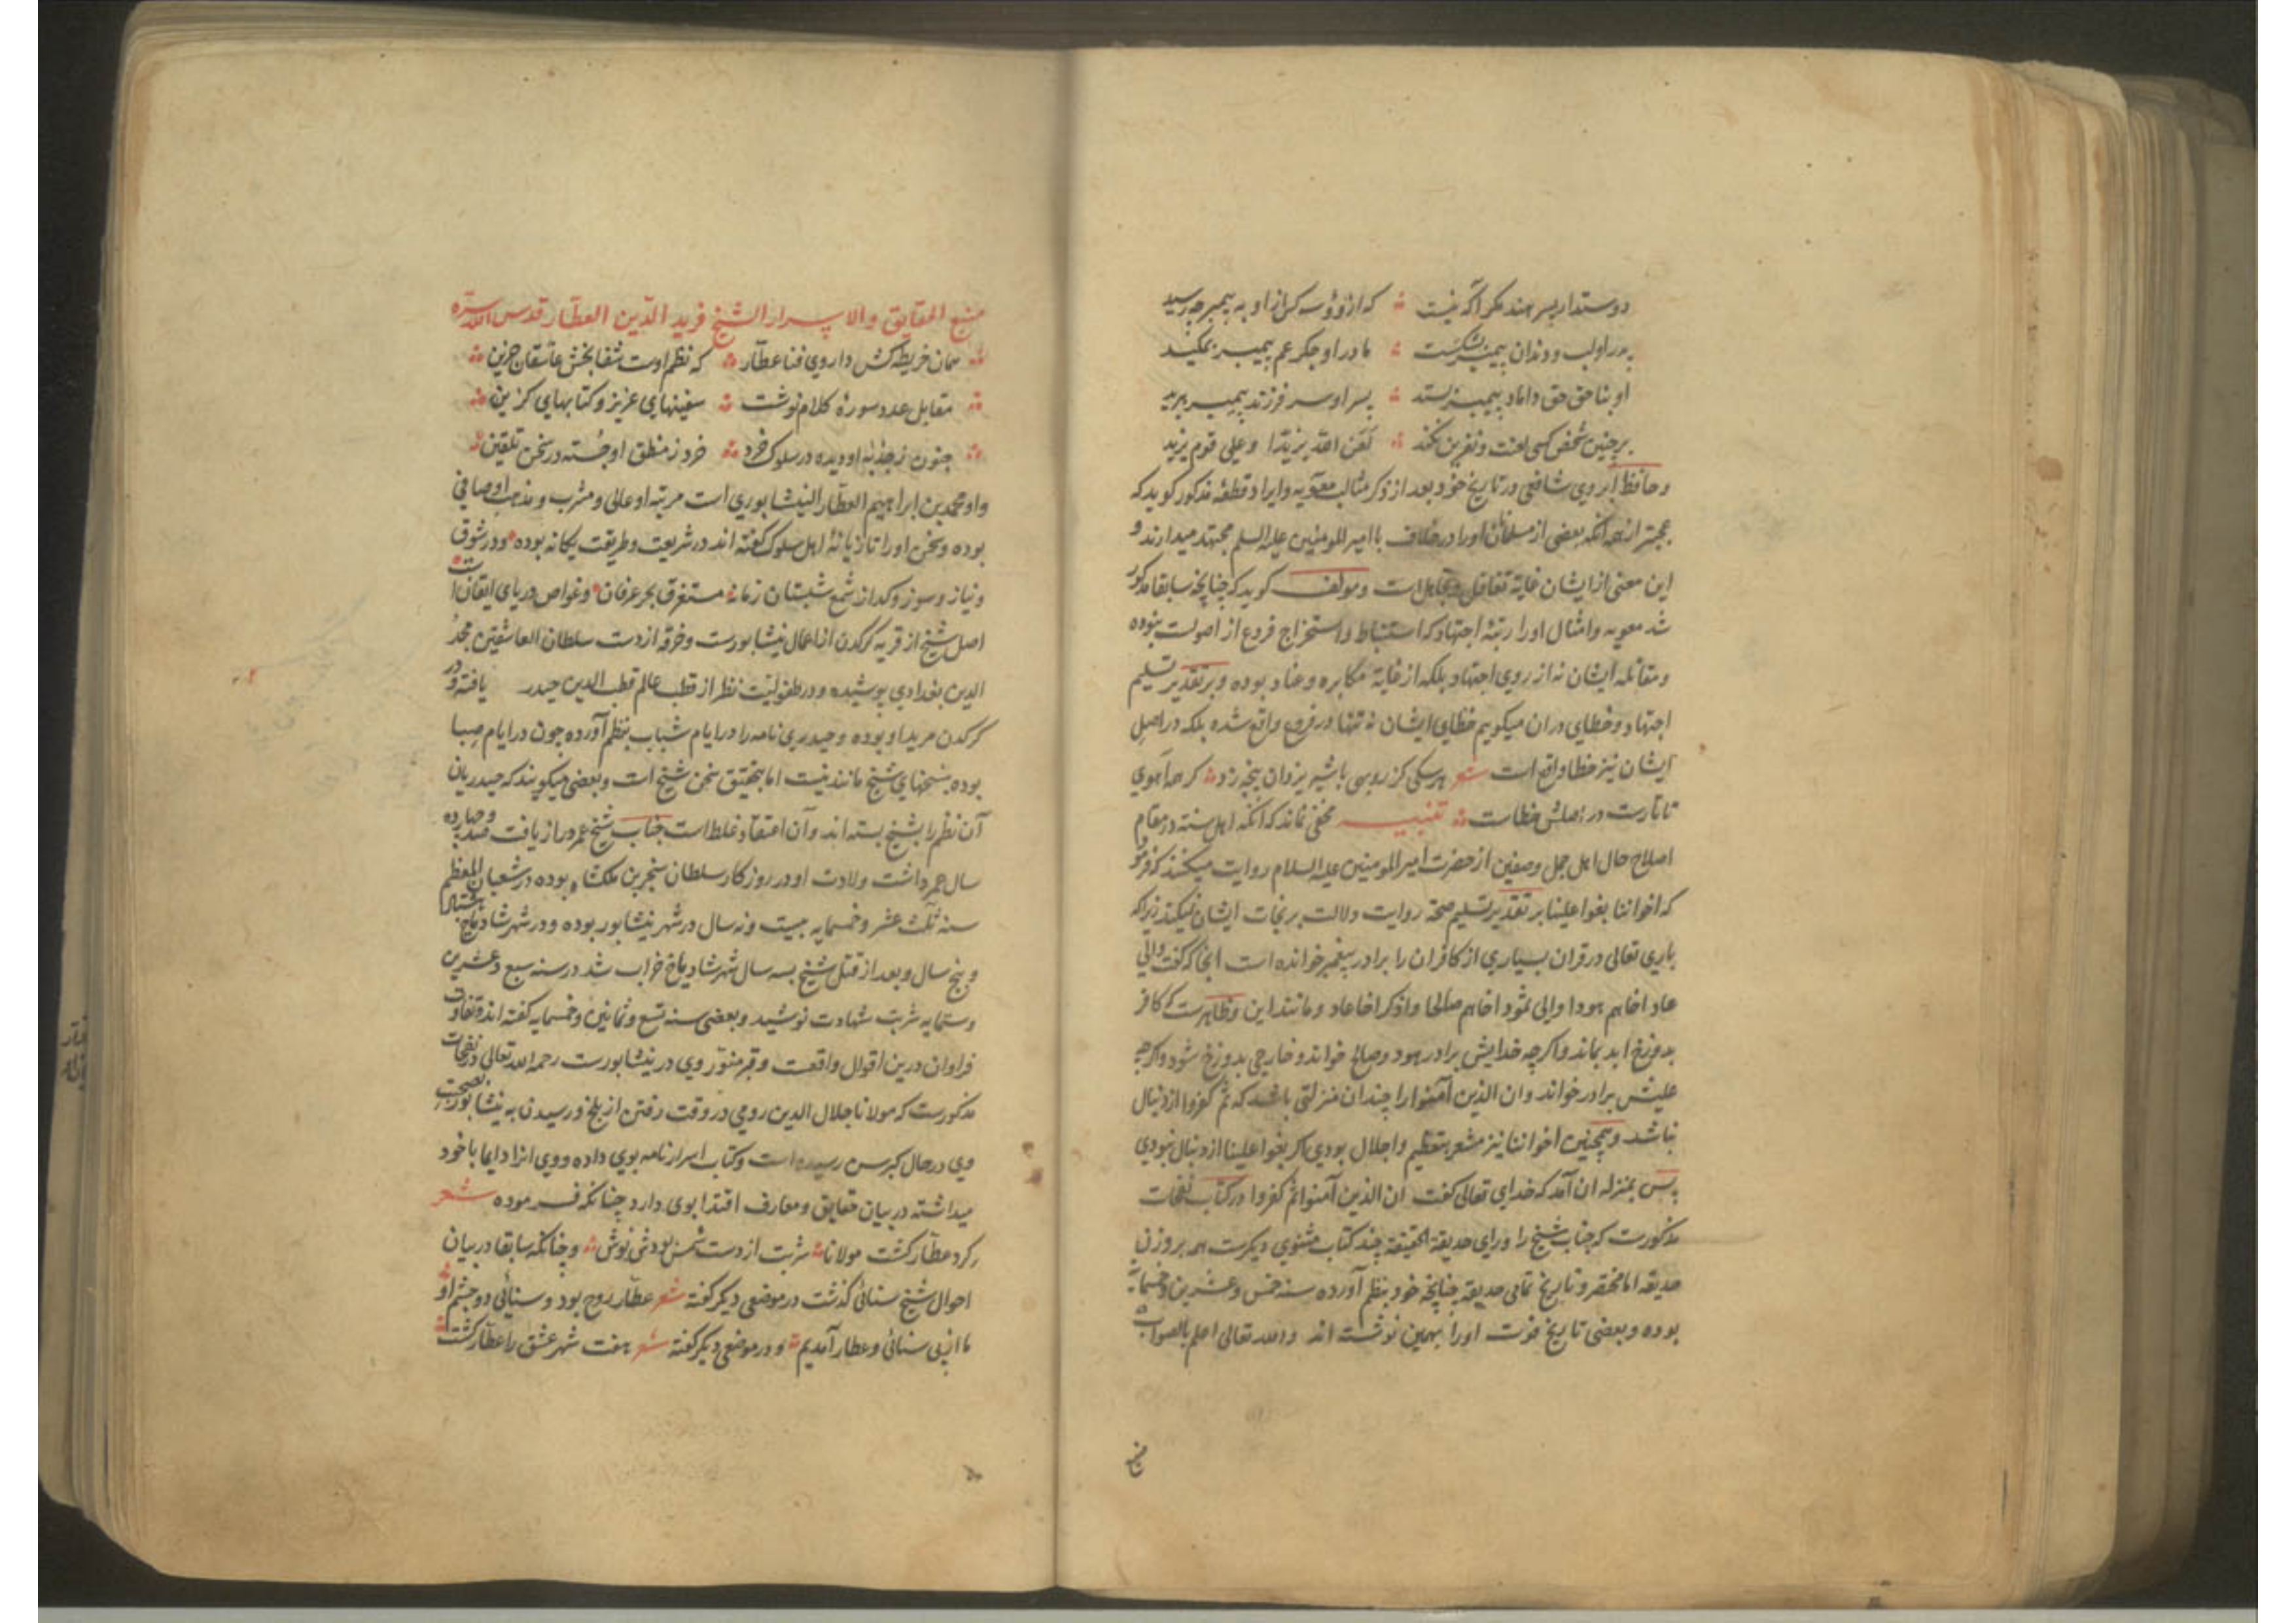 دوستدار پسر هند مکر آگه نیست ؞ که ازو و سه کس از او به پیمبر چه رسید
پدر او لب و دندان پیمبر بشکست ؞ مادر او جکر عم پیمبر بمکید
او بناحق حق داماد پیمبر بستد ؞ پسر او سر فرزند پیمبر ببرید
بر چنین شخص کسی لعنت و نفرین نکند ؞ لعن الله یزیدا و علی قوم یزید
و حافظ ابروی شافعی در تاریخ خود بعد از ذکر مثالب معویه و ایراد قطعه مذکور کوید که
عجبتر از همه آنکه بعضی از مسلمانان او را در خلاف با امیر المومنین علیه السلم مجتهد میدارند و
این معنی از ایشان غایة تغافل و تجاهل است و مولف کوید که چنانچه سابقا مذکور
شد معویه و امثال او را رتبهٔ اجتهاد که استنباط و استخراج فروع از اصولست نبوده
و مقاتله ایشان نه از روی اجتهاد بلکه از غایة مکابره و عناد بوده و بر تقدیر تسلیم
اجتهاد و خطای در ان میکویم خطای ایشان نه تنها در فروع واقع شده بلکه در اصل
ایشان نیز خطا واقع است شعر هر سکی کز روبهی با شیر یزدان پنجه زد ؞ کر همه آهوی
تاتارست در اصلش خطاست ؞ تنبیه مخفی نماند که آنکه اهل سنة در مقام
اصلاح حال اهل جمل و صفین از حضرت امیر المومنین علیه السلام روایت میکنند که فرمود
که اخواننا بغوا علینا بر تقدیر تسلیم صحة روایت دلالت بر نجات ایشان نمیکند زیرا که
باری تعالی در قران بسیاری از کافران را برادر پیغمبر خوانده است انجا که گفت والی
عاد اخاهم هودا والی ثمود اخاهم صالحا واذکر اخا عاد و مانند این و ظاهرست که کافر
بدوزخ ابد بماند و اکرچه خدایش برادر هود و صالح خواند و خارجی بدوزخ شود و اکرچه
علیش برادر خواند و ان الذین آمنوا را چندان منزلتی باشد که ثم کفروا از دنبال
نباشد و همچنین اخواننا نیز مشعر بتعظیم و اجلال بودی اکر بغوا علینا از دنبال نبودی
پس بمنزله ان آمد که خدای تعالی گفت ان الذین آمنوا ثم کفروا در کتاب نفحات
مذکورست که جناب شیخ را ورای حدیقة الحقیقة چند کتاب مثنوی دیکرست هم بر وزن
حدیقه اما مختصر و تاریخ تمامی حدیقه چنانچه خود بنظم آورده سنه خمس و عشرین و خمسمایه
بوده و بعضی تاریخ فوت او را همین نوشته اند والله تعالی اعلم بالصواب
منبع
منبع الحقایق والاسرار الشیخ فرید الدین العطار قدس الله سره
؞ همان خریطه کش داروی فنا عطار ؞ که نظم اوست شفا بخش عاشقان حزین ؞
؞ مقابل عدد سورهٔ کلام نوشت ؞ سفینهای عزیز و کتابهای کزین ؞
؞ جنون ز جذبهٔ او دیده در سلوک خرد ؞ خرد ز منطق او جسته در سخن تلقین ؞
و او محمد بن ابراهیم العطار النیشابوری است مرتبه او عالی و مشرب و مذهب او صافی
بوده و سخن او را تازیانهٔ اهل سلوک گفته اند در شریعت و طریقت یکانه بوده و در شوق
و نیاز و سوز و کداز شمع شبستان زمانه مستغرق بحر عرفان و غواص دریای ایقان است
اصل شیخ از قریه کرکدن از اعمال نیشابورست و خرقه از دست سلطان العاشقین مجد
الدین بغدادی پوشیده و در طفولیت نظر از قطب عالم قطب الدین حیدر یافته و در
کرکدن مرید او بوده و حیدری نامه را در ایام شباب بنظم آورده چون در ایام صبا
بوده بسخنهای شیخ مانند نیست اما بتحقیق سخن شیخ است و بعضی میکویند که حیدریان
آن نظم را بشیخ بسته اند و آن اعتقاد غلط است جناب شیخ عمر دراز یافت صد و چهارده
سال عمر داشت ولادت او در روزکار سلطان سنجر بن ملکشاه بوده در شعبان المعظم
سنه ثلث عشر و خمسمایه بیست و نه سال در شهر نیشابور بوده و در شهر شادیاخ هشتاد
و پنج سال و بعد از قتل شیخ بسه سال شهر شادیاخ خراب شد در سنه سبع و عشرین
و ستمایه شربت شهادت نوشید و بعضی سنه تسع و ثمانین و خمسمایه گفته اند و تفاوت
فراوان درین اقوال واقعست و قبر منور وی در نیشابورست رحمه الله تعالی و در نفحات
مذکورست که مولانا جلال الدین رومی در وقت رفتن از بلخ و رسیدن به نیشابور بصحبت
وی در حال کبر سن رسیده است و کتاب اسرار نامه بوی داده و وی انرا دایما با خود
میداشته در بیان حقایق و معارف اقتدا بوی دارد چنانکه فرموده شعر
کرد عطار کشت مولانا ؞ شربت از دست شمس بودش نوش ؞ و چنانکه سابقا در بیان
احوال شیخ سنائی کذشت در موضعی دیکر گفته شعر عطار روح بود و سنائی دو چشم او ؞
ما از پی سنائی و عطار آمدیم ؞ و در موضعی دیکر گفته شعر هفت شهر عشق را عطار کشت ؞